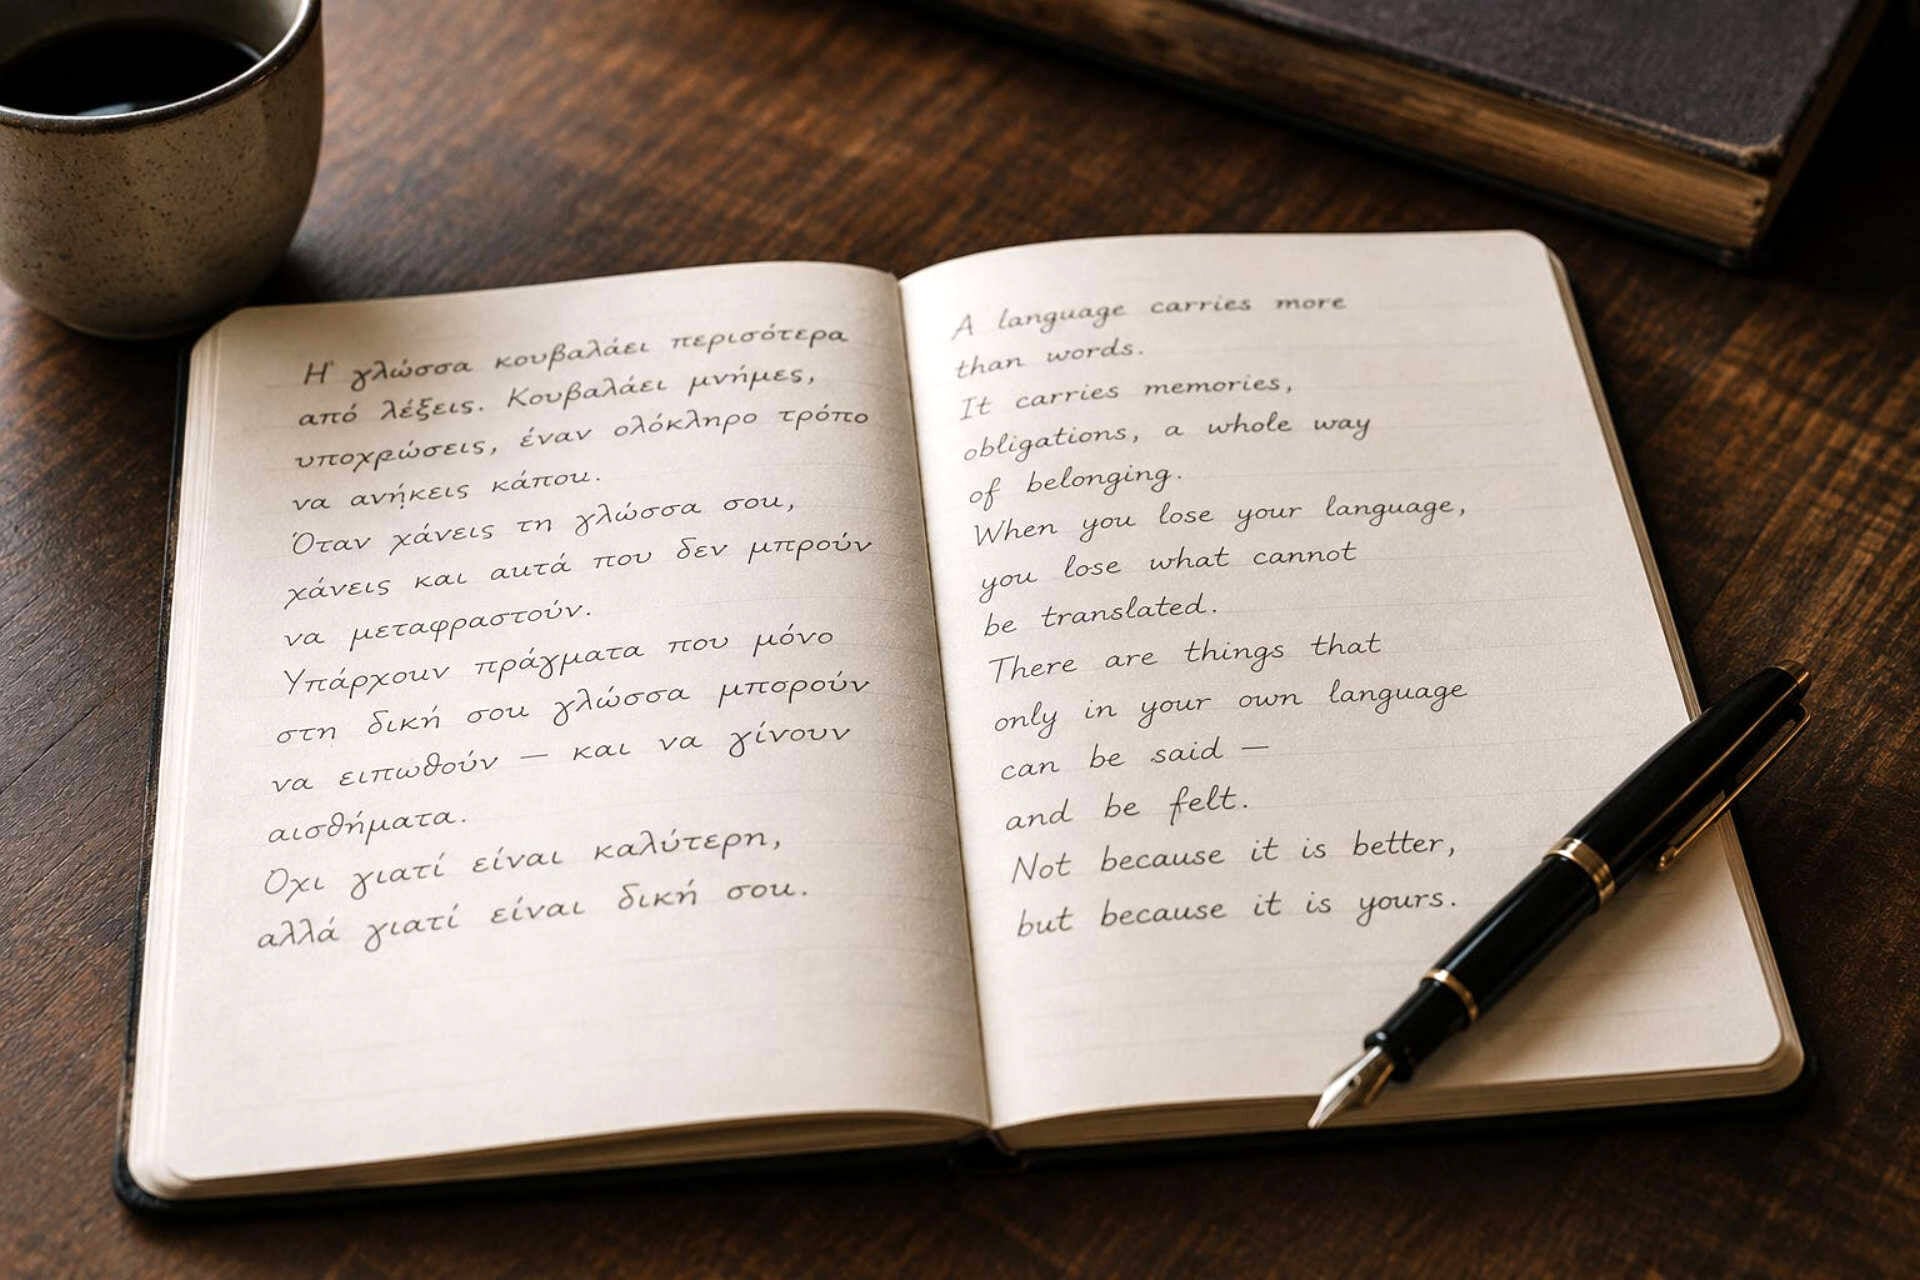 Η γλώσσα κουβαλάει περισότερα
από λέξεις. Κουβαλάει μνήμες,
υποχρώσεις, έναν ολόκληρο τρόπο
να ανήκεις κάπου.
Όταν χάνεις τη γλώσσα σου,
χάνεις και αυτά που δεν μπρούν
να μεταφραστούν.
Υπάρχουν πράγματα που μόνο
στη δική σου γλώσσα μπορούν
να ειπωθούν — και να γίνουν
αισθήματα.
Όχι γιατί είναι καλύτερη,
αλλά γιατί είναι δική σου.
A language carries more
than words.
It carries memories,
obligations, a whole way
of belonging.
When you lose your language,
you lose what cannot
be translated.
There are things that
only in your own language
can be said —
and be felt.
Not because it is better,
but because it is yours.